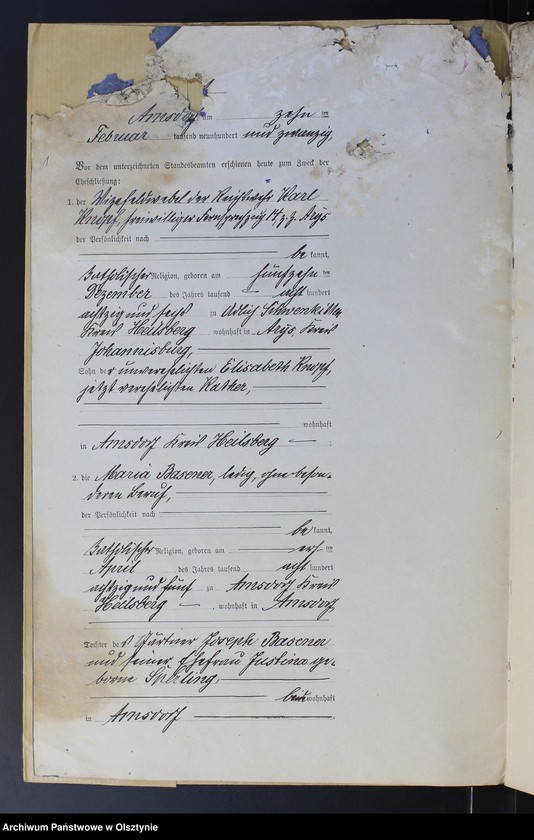 Arnsdorf am zehn ten
Februar tausend neunhundert und zwanzig,
Vor dem unterzeichneten Standesbeamten erschienen heute zum Zweck der
Eheschließung:
1. der Vizefeldwebel der Reichswehr Karl
Knopf, freiwilliger Fernsprechzug 14, z. Z. Arys
der Persönlichkeit nach
be kannt,
katholischer Religion, geboren am fünfzehn ten
Dezember des Jahres tausend acht hundert
achtzig und sechs zu Adlig Schwenkitten
Kreis Heilsberg wohnhaft in Arys, Kreis
Johannisburg,
Sohn der unverehelichten Elisabeth Knopf,
jetzt verehelichten Kather,
wohnhaft
in Arnsdorf Kreis Heilsberg ;
2. die Maria Basener, ledig, ohne beson-
deren Beruf,
der Persönlichkeit nach
be kannt,
katholischer Religion, geboren am ten
April des Jahres tausend acht hundert
achtzig und fünf zu Arnsdorf Kreis
Heilsberg , wohnhaft in Arnsdorf,
Tochter des Gärtner Joseph Basener
und seiner Ehefrau Justina ge-
borne Sperling,
beide wohnhaft
in Arnsdorf .
1
Archiwum Państwowe w Olsztynie